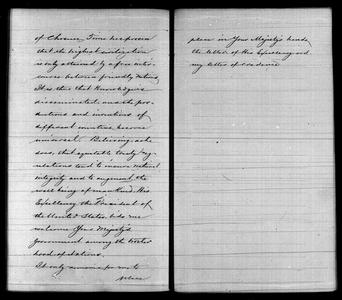 of Chosen. Time has proven
that the highest civilization
is only attained by a free inter-
course between friendly nations,
It is thus that knowledge is
disseminated and the pro-
ductions and inventions of
different countries become
universal. Believing as he
does, that equitable treaty reg-
ulations tend to insure national
integrity and to augment the
well being of mankind, His
Excellency the President of
the United States bids me
welcome Your Majesty's
Government among the brother
hood of Nations.
It only remains for me to
place
place in Your Majesty's hands
the letter of His Excellency and
my letter of credence